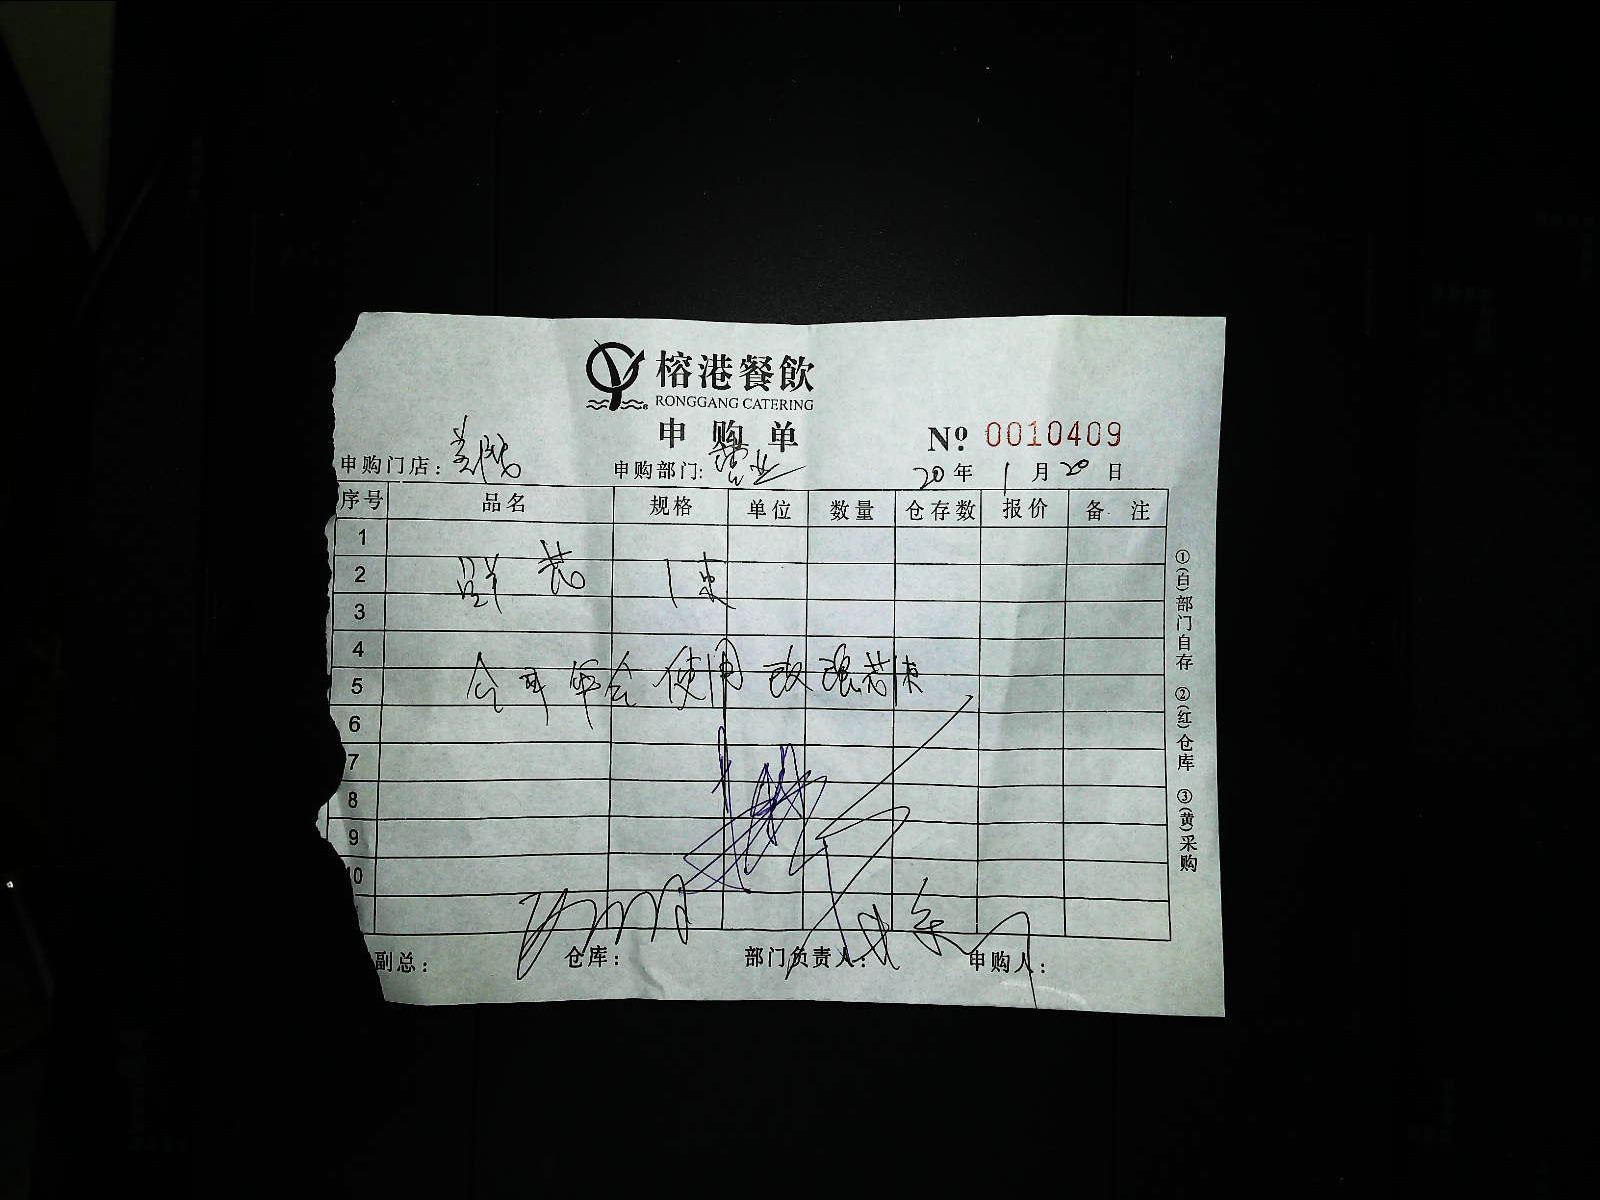 榕港餐飲
RONGGANG CATERING
申购单
№ 0010409
申购门店： 申购部门: 营业 20年1月20日
序号 品名 规格 单位 数量 仓存数 报价 备注
1
2 鲜花 1束
3
4
5 会 年会使用
6
7
8
9
10
副总： 仓库： 部门负责人： 申购人：
①(白)部门自存 ②(红)仓库 ③(黄)采购